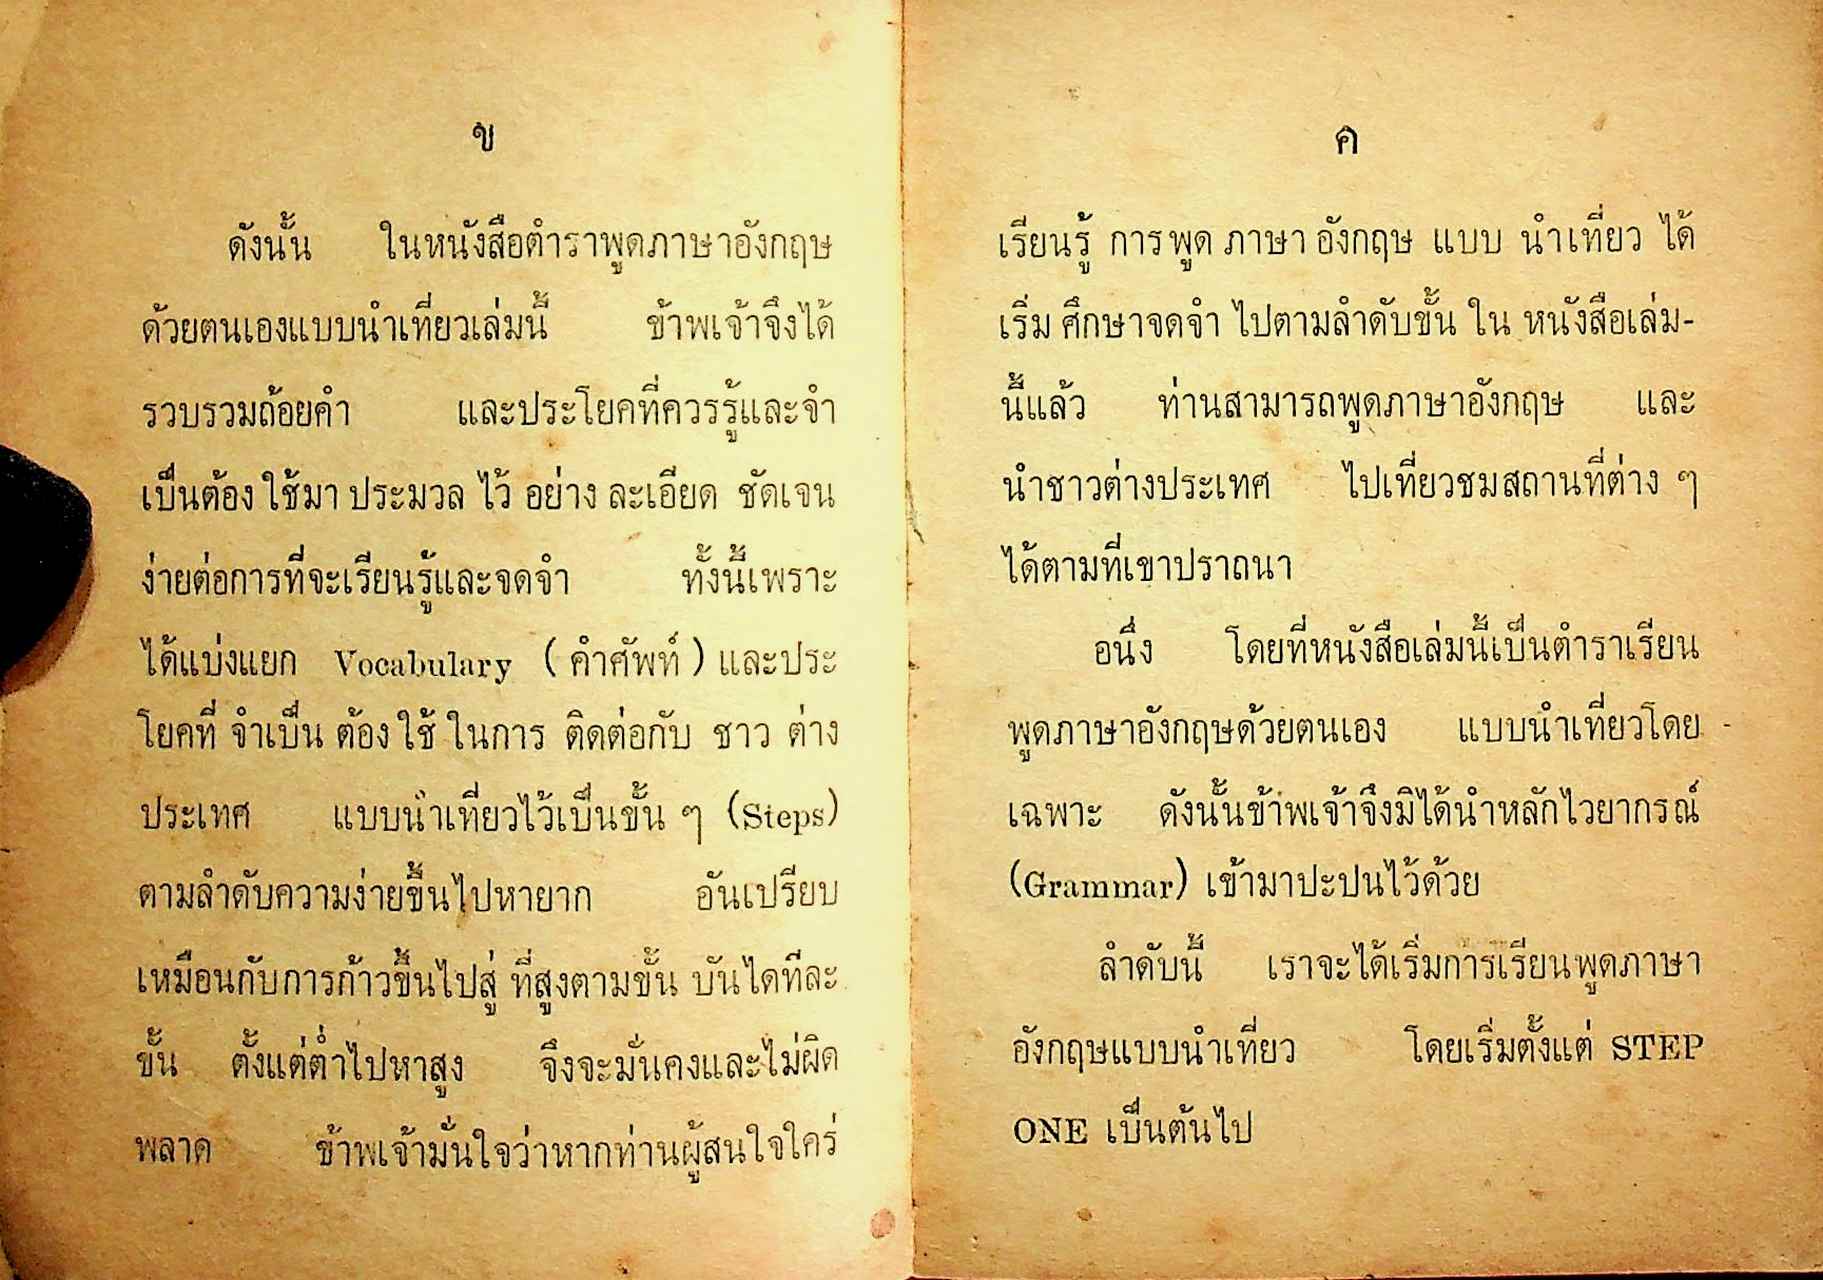 ข
ดังนั้น ในหนังสือตำราพูดภาษาอังกฤษ
ด้วยตนเองแบบนำเที่ยวเล่มนี้ ข้าพเจ้าจึงได้
รวบรวมถ้อยคำ และประโยคที่ควรรู้และจำ
เป็นต้อง ใช้มา ประมวล ไว้ อย่าง ละเอียด ชัดเจน
ง่ายต่อการที่จะเรียนรู้และจดจำ ทั้งนี้เพราะ
ได้แบ่งแยก Vocabulary ( คำศัพท์ ) และประ
โยคที่ จำเป็น ต้อง ใช้ ในการ ติดต่อกับ ชาว ต่าง
ประเทศ แบบนำเที่ยวไว้เป็นขั้น ๆ (Steps)
ตามลำดับความง่ายขึ้นไปหายาก อันเปรียบ
เหมือนกับการก้าวขึ้นไปสู่ ที่สูงตามขั้น บันไดทีละ
ขั้น ตั้งแต่ต่ำไปหาสูง จึงจะมั่นคงและไม่ผิด
พลาด ข้าพเจ้ามั่นใจว่าหากท่านผู้สนใจใคร่
ค
เรียนรู้ การพูด ภาษา อังกฤษ แบบ นำเที่ยว ได้
เริ่ม ศึกษาจดจำ ไปตามลำดับขั้น ใน หนังสือเล่ม-
นี้แล้ว ท่านสามารถพูดภาษาอังกฤษ และ
นำชาวต่างประเทศ ไปเที่ยวชมสถานที่ต่าง ๆ
ได้ตามที่เขาปราถนา
อนึ่ง โดยที่หนังสือเล่มนี้เป็นตำราเรียน
พูดภาษาอังกฤษด้วยตนเอง แบบนำเที่ยวโดย
เฉพาะ ดังนั้นข้าพเจ้าจึงมิได้นำหลักไวยากรณ์
(Grammar) เข้ามาปะปนไว้ด้วย
ลำดับนี้ เราจะได้เริ่มการเรียนพูดภาษา
อังกฤษแบบนำเที่ยว โดยเริ่มตั้งแต่ STEP
ONE เป็นต้นไป